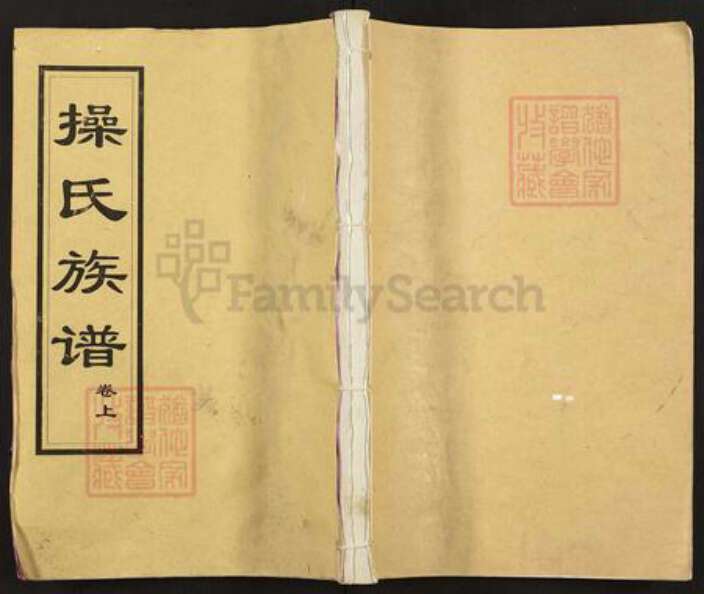 操氏族谱
卷上
FamilySearch
猶他家
譜學會
收藏
猶他家
譜學會
收藏